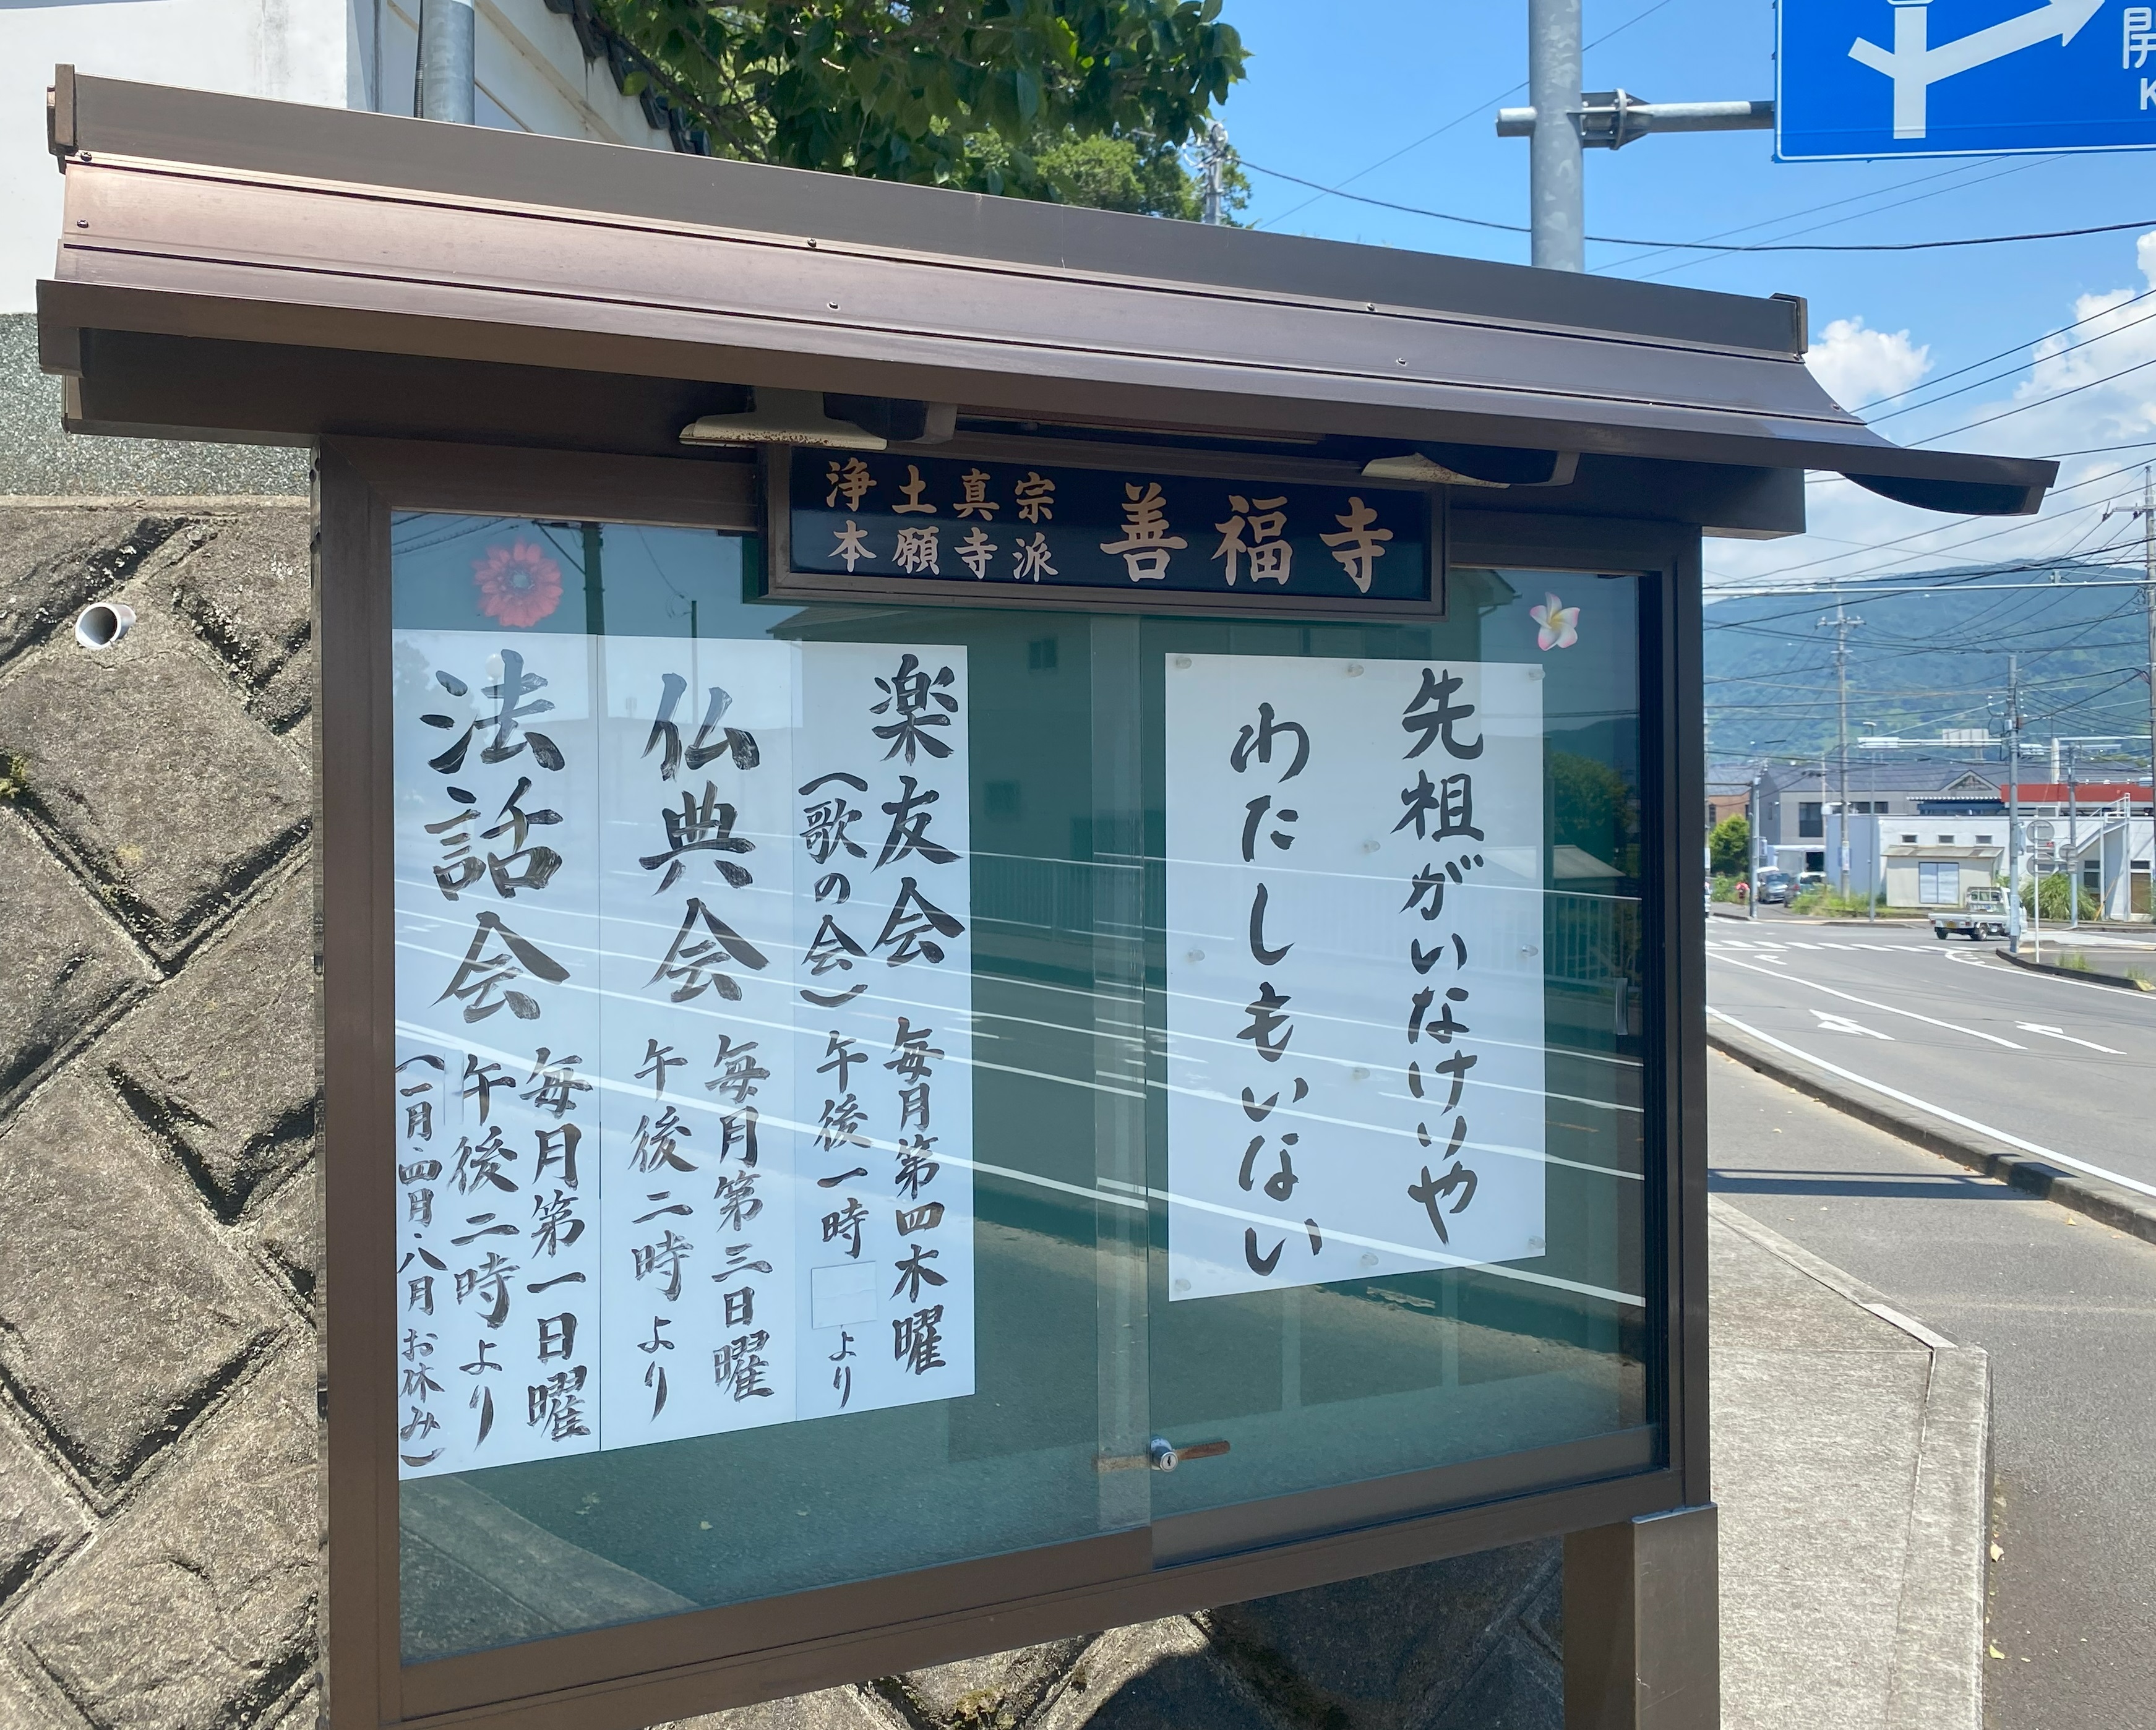 浄土真宗
本願寺派
善福寺
先祖がいなけりや
わたしもいない
楽友会 毎月第四木曜
(歌の会) 午後一時 より
仏典会 毎月第三日曜
午後二時より
法話会 毎月第一日曜
午後二時より
(一月・四月・八月お休み)
開
K